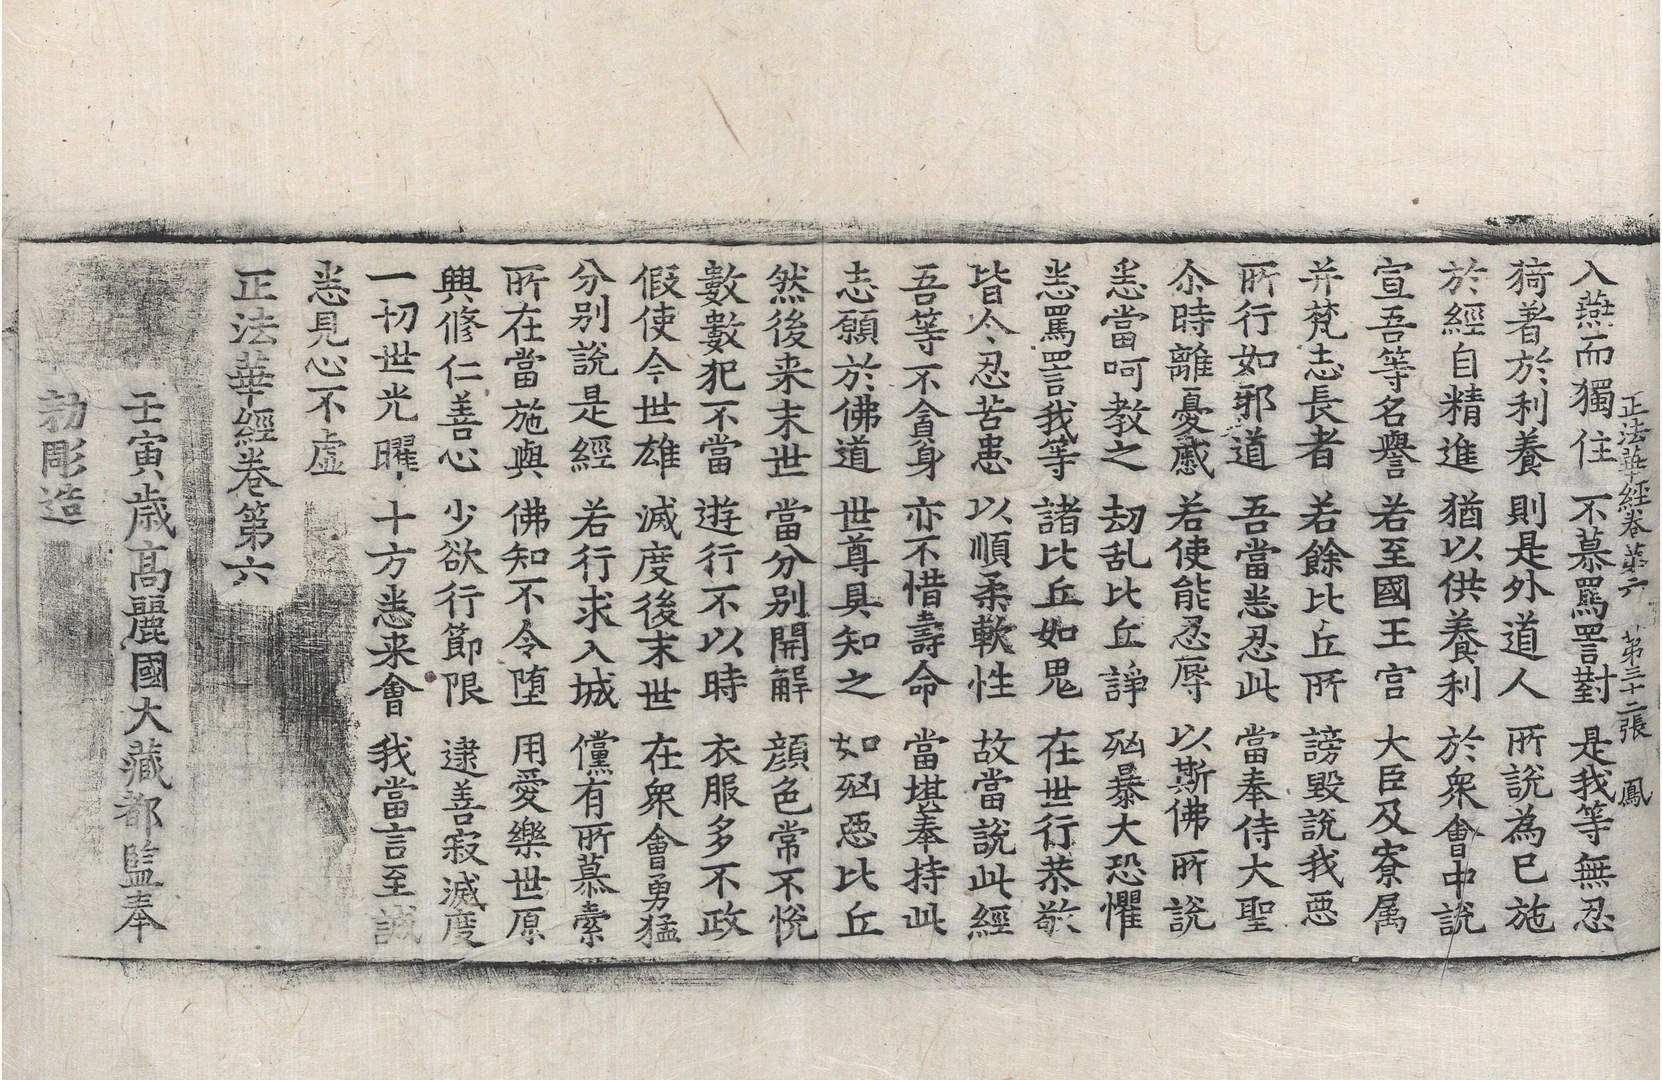 正法華經卷第六 第三十二張 鳳
入燕而獨住 不慕罵詈對 是我等無忍
猗著於利養 則是外道人 所說為已施
於經自精進 猶以供養利 於衆會中說
宣吾等名譽 若至國王宮 大臣及寮属
并梵志長者 若餘比丘所 謗毀說我惡
所行如邪道 吾當悉忍此 當奉侍大聖
尒時離憂慼 若使能忍辱 以斯佛所說
悉當呵教之 劫乱比丘諍 㐫暴大恐懼
恚罵詈我等 諸比丘如鬼 在世行恭敬
皆令忍苦患 以順柔軟性 故當說此經
吾等不貪身 亦不惜壽命 當堪奉持此
志願於佛道 世尊具知之 如㐫惡比丘
然後来末世 當分別開解 顔色常不悅
數數犯不當 遊行不以時 衣服多不政
假使今世雄 滅度後末世 在衆會勇猛
分別說是經 若行求入城 儻有所慕索
所在當施與 佛知不令堕 用愛樂世原
興修仁善心 少欲行節限 逮善寂滅度
一切世光曜 十方悉来會 我當言至誠
悉見心不虛
正法華經卷第六
壬寅歳髙麗國大藏都監奉
勑彫造